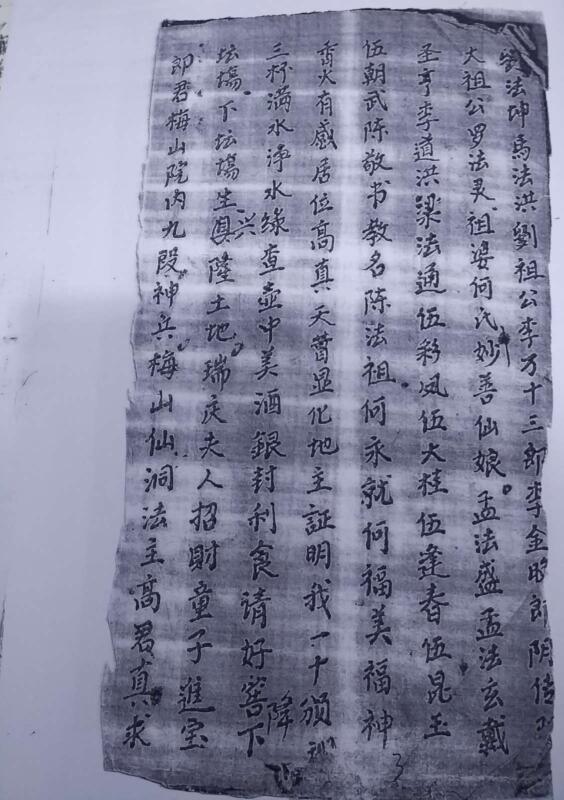 劉法坤馬法洪劉祖公李万十三郎李金郎阴传
大祖公罗法灵祖婆何氏妙善仙娘孟法盛孟法玄戴
圣亨李道洪梁法通伍彩凤伍大桂伍逢春伍昆玉
伍朝武陈敬书教名陈法祖何永就何福美福神
香火有感居位高真天曹显化地主証明我一十颁
三杯满水净水绿查壶中美酒銀封利食请好窖下降
坛塲下坛塲生兴隆土地瑞庆夫人招財童子進宝
郎君梅山院内九殿神兵梅山仙洞法主高君真求